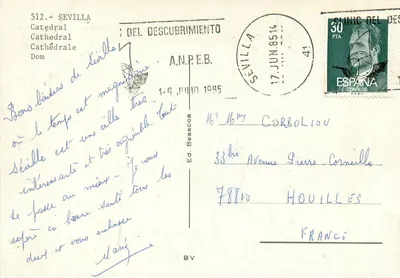 512.- SEVILLA
Catedral
Cathedral
Cathédrale
Dom
DEL DESCUBRIMIENTO
A.N.P.E.B.
16 JUNIO 1985
SEVILLA
17 JUN. 85 14
41
CLINIC DEL DES
30
PTA
ESPAÑA
CORREOS
Bons baisers de Séville
où le temps est magnifique
Séville est une ville très
intéressante et très agréable Tout
se passe au mieux - Je vous
espère en bonne santé tous les
deux et vous embrasse
Marie
Ed. Beascoa
BV
CORBOLIOU
33 bis Avenue Pierre Corneille
78800 HOUILLES
FRANCE